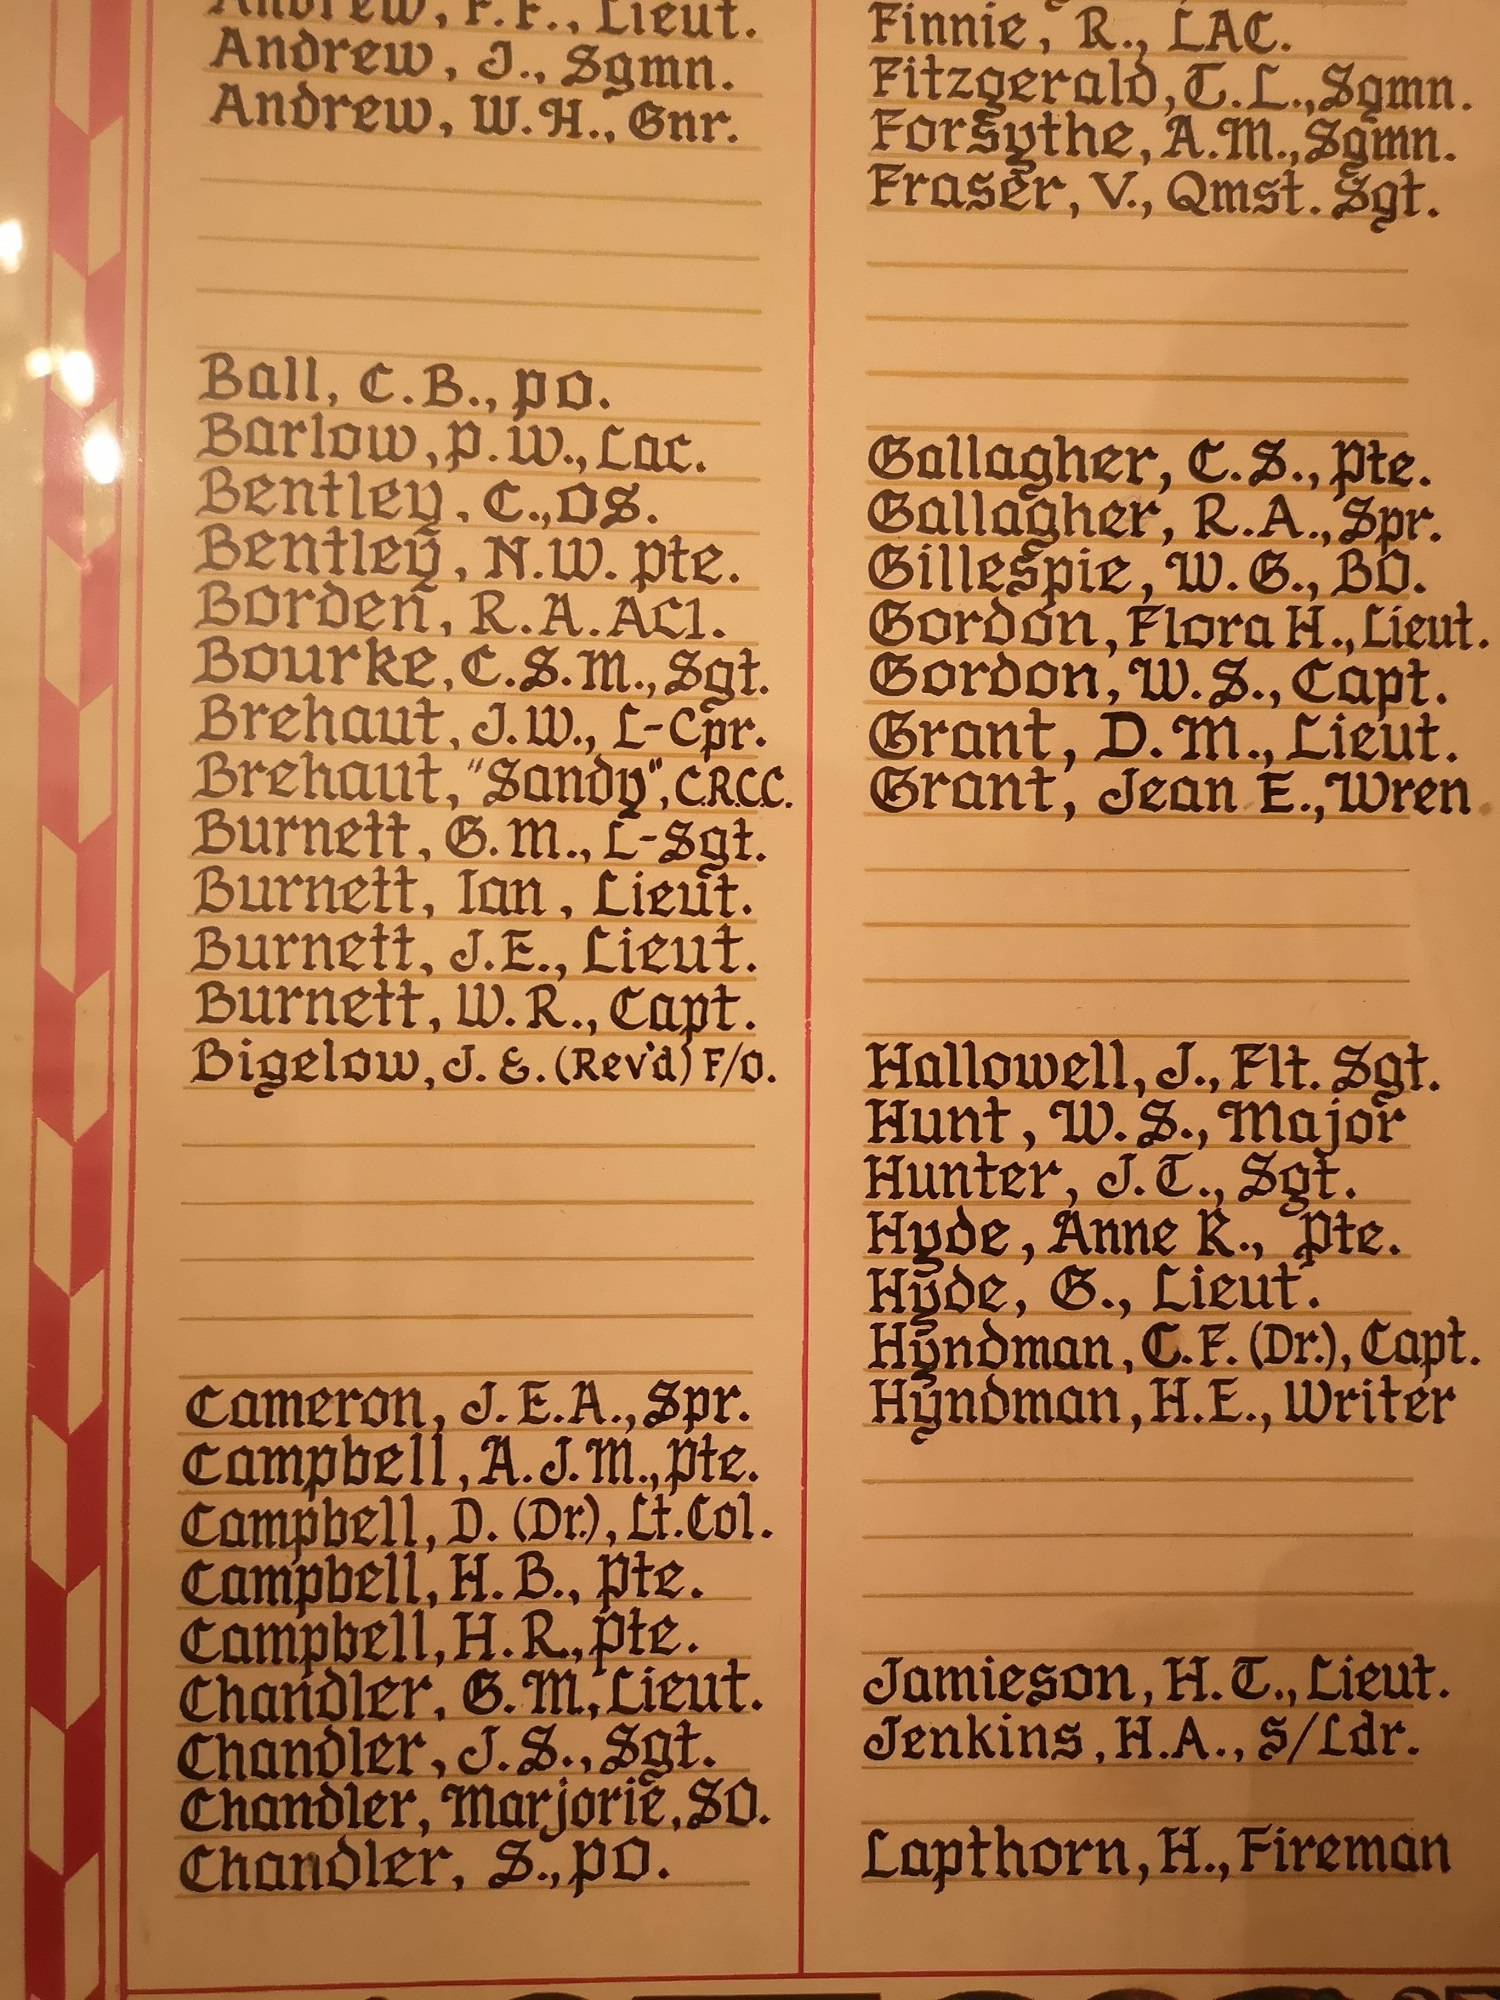 Andrew, F.F., Lieut.
Andrew, J., Sgmn.
Andrew, W.H., Gnr.
Ball, C.B., PO.
Barlow, P.W., Lac.
Bentley, C., OS.
Bentley, N.W. Pte.
Borden, R.A. AC1.
Bourke, C.S.M., Sgt.
Brehaut, J.W., L-Cpr.
Brehaut, "Sandy", C.R.C.C.
Burnett, G.M., L-Sgt.
Burnett, Ian, Lieut.
Burnett, J.E., Lieut.
Burnett, W.R., Capt.
Bigelow, J. E. (Rev'd) F/O.
Cameron, J.E.A., Spr.
Campbell, A.J.M., Pte.
Campbell, D. (Dr.), Lt. Col.
Campbell, H.B., Pte.
Campbell, H.R., Pte.
Chandler, G.M., Lieut.
Chandler, J.S., Sgt.
Chandler, Marjorie, SO.
Chandler, S., PO.
Finnie, R., LAC.
Fitzgerald, T.L., Sgmn.
Forsythe, A.M., Sgmn.
Fraser, V., Qmst. Sgt.
Gallagher, C.S., Pte.
Gallagher, R.A., Spr.
Gillespie, W.G., BO.
Gordon, Flora H., Lieut.
Gordon, W.S., Capt.
Grant, D.M., Lieut.
Grant, Jean E., Wren
Hallowell, J., Flt. Sgt.
Hunt, W.S., Major
Hunter, J.T., Sgt.
Hyde, Anne R., Pte.
Hyde, G., Lieut.
Hyndman, C.F. (Dr.), Capt.
Hyndman, H.E., Writer
Jamieson, H.T., Lieut.
Jenkins, H.A., S/Ldr.
Lapthorn, H., Fireman